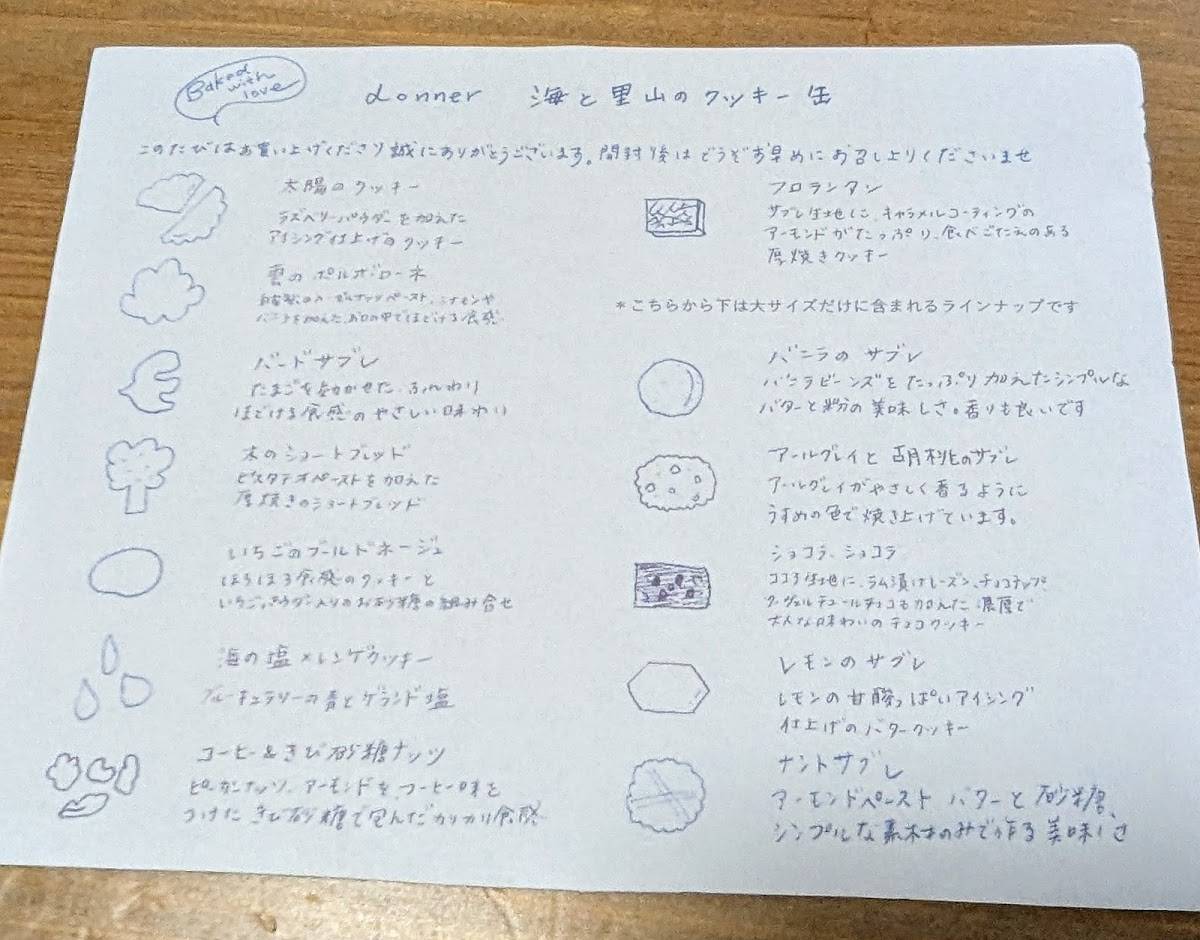 Baked
with
love
donner 海と里山のクッキー缶
このたびはお買い上げくださり誠にありがとうございます。開封後はどうぞお早めにお召し上りくださいませ
太陽のクッキー
ラズベリーパウダーを加えた
アイシング仕上げのクッキー
雲のポルボローネ
自家製のヘーゼルナッツペースト、シナモンや
バニラを加えた、お口の中でほどける食感
バードサブレ
たまごを効かせた、ふんわり
ほどける食感のやさしい味わり
木のショートブレッド
ピスタチオペーストを加えた
厚焼きのショートブレッド
いちごのブールドネージュ
ほろほろ食感のクッキーと
いちごパウダー入りのお砂糖の組み合せ
海の塩メレンゲクッキー
ブルーキュラソーの青とゲランド塩
コーヒー&きび砂糖ナッツ
ピーカンナッツ、アーモンドを、コーヒー味を
つけたきび砂糖で包んだカリカリ食感
フロランタン
サブレ生地に、キャラメルコーティングの
アーモンドがたっぷり、食べごたえのある
厚焼きクッキー
*こちらから下は大サイズだけに含まれるラインナップです
バニラのサブレ
バニラビーンズをたっぷり加えたシンプルな
バターと粉の美味しさ。香りも良いです
アールグレイと胡桃のサブレ
アールグレイがやさしく香るように
うすめの色で焼き上げています。
ショコラ、ショコラ
ココア生地に、ラム漬けレーズン、チョコチップ、
クーヴェルチュールチョコも加えた、濃厚で
大人な味わいのチョコクッキー
レモンのサブレ
レモンの甘酸っぱいアイシング
仕上げのバタークッキー
ナントサブレ
アーモンドペースト バターと砂糖、
シンプルな素材のみで作る美味しさ